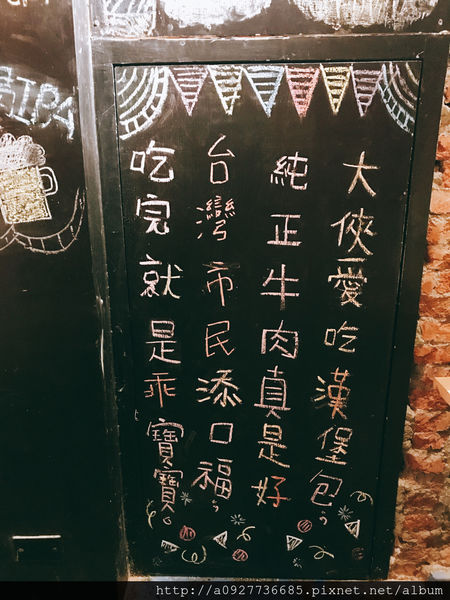 大俠愛吃漢堡包
純正牛肉真是好
台灣市民添口福
吃完就是乖寶寶
http://a0927736685.pixnet.net/album